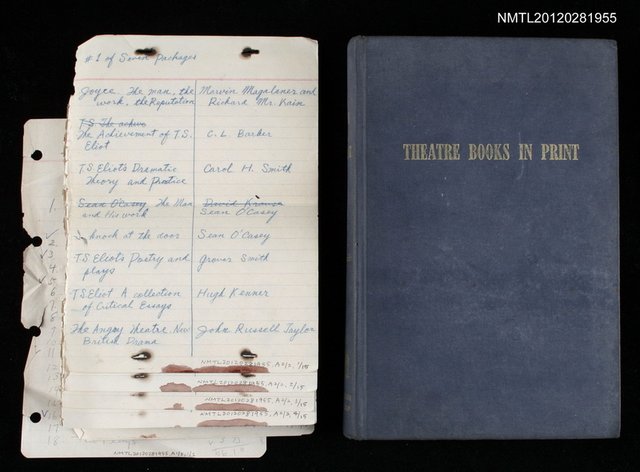 NMTL20120281955
#1 of Seven Packages
Joyce. The man, the Marvin Magalaner and
work, the Reputation Richard Mr. Kain
T.S. The achive
The Achievement of T.S. C. L. Barber
Eliot
T.S. Eliot's Dramatic Carol H. Smith
Theory and Practice
Sean O'Casey, The Man David Krause
and His work Sean O'Casey
knock at the door Sean O'Casey
T.S. Eliot's Poetry and Grover Smith
plays
T.S. Eliot A collection Hugh Kenner
of Critical Essays
The Angry Theatre. New John Russell Taylor
British Drama
NMTL20120281955, A2/2, 1/15
NMTL20120281955, A2/2, 2/15
NMTL20120281955, A2/2, 3/15
NMTL20120281955, A2/2, 4/15
1.
2.
3
4
5
6
7
8
9
10
11
12
17
18
THEATRE BOOKS IN PRINT